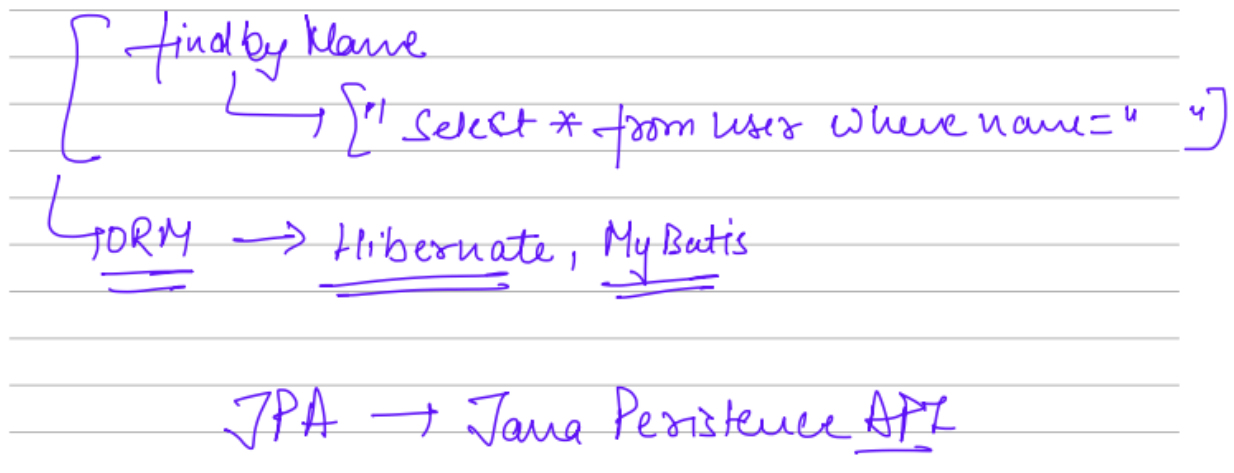 findby Name
["Select * from user where name=" "]
ORM → Hibernate, MyBatis
JPA → Java Persistence API